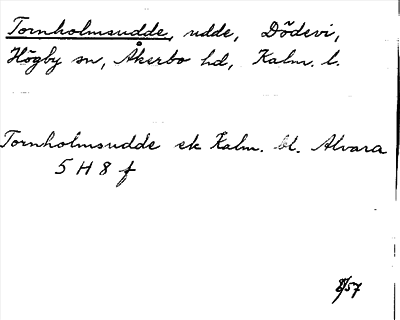 Tornholmsudde, udde, Dödevi,
Högby sn, Åkerbo hd, Kalm. l.
Tornholmsudde ek Kalm. bl. Alvara
5 H 8 f
/57